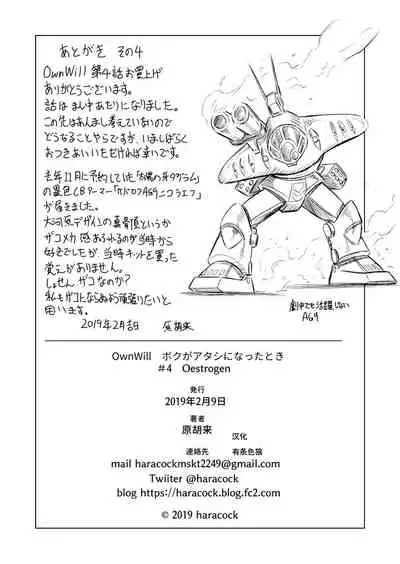 あとがき その4
OwnWill 第4話お買上げ
ありがとうございます。
話はまん中あたりになりました。
この先はあんまし考えていないので
どうなることやらですが、いましばらく
おつきあいいただければ幸いです。
去年11月に予約していた「太陽の牙ダグラム」
の
が届きました。
大河原デザインの真骨頂というか
ザコメカ感あふれるのが当時から
好きでしたが、当時キットを買った
覚えがありません。
しょせんザコなのか?
私もザコにならぬよう頑張りたいと
思います。
2019年2月吉日 原胡来
劇中でも活躍しない
AG9
OwnWill ボクがアタシになったとき
#4 Oestrogen
発行
2019年2月9日
著者
原胡来 汉化
連絡先 有条色狼
mail haracockmskt2249@gmail.com
Twiiter @haracock
blog https://haracock.blog.fc2.com
© 2019 haracock